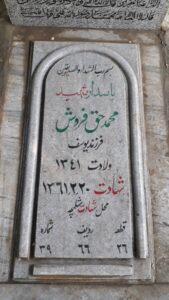 بسم رب الشهداء و الصدیقین
پاسدار شهید
محمد حق فروش
فرزند یوسف
ولادت ۱۳۴۱
شهادت ۱۳۶۱٫۲٫۲۰
محل شهادت شلمچه
قطعه ردیف شماره
۲۶ ۶۶ ۳۹